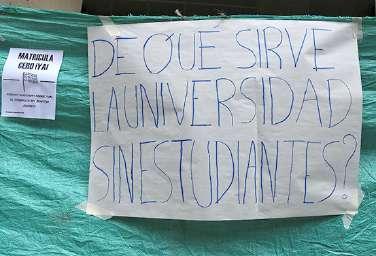 MATRICULA
CERO ¡YA!
DE QUE SIRVE
LA UNIVERSIDAD
SIN ESTUDIANTES?